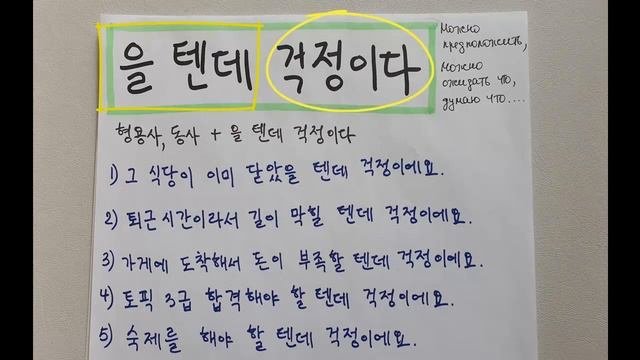 을 텐데 걱정이다
можно
предположить,
можно
ожидать что,
думаю что....
형용사, 동사 + 을 텐데 걱정이다
1) 그 식당이 이미 닫았을 텐데 걱정이에요.
2) 퇴근 시간이라서 길이 막힐 텐데 걱정이에요.
3) 가게에 도착해서 돈이 부족할 텐데 걱정이에요.
4) 토픽 3급 합격해야 할 텐데 걱정이에요.
5) 숙제를 해야 할 텐데 걱정이에요.